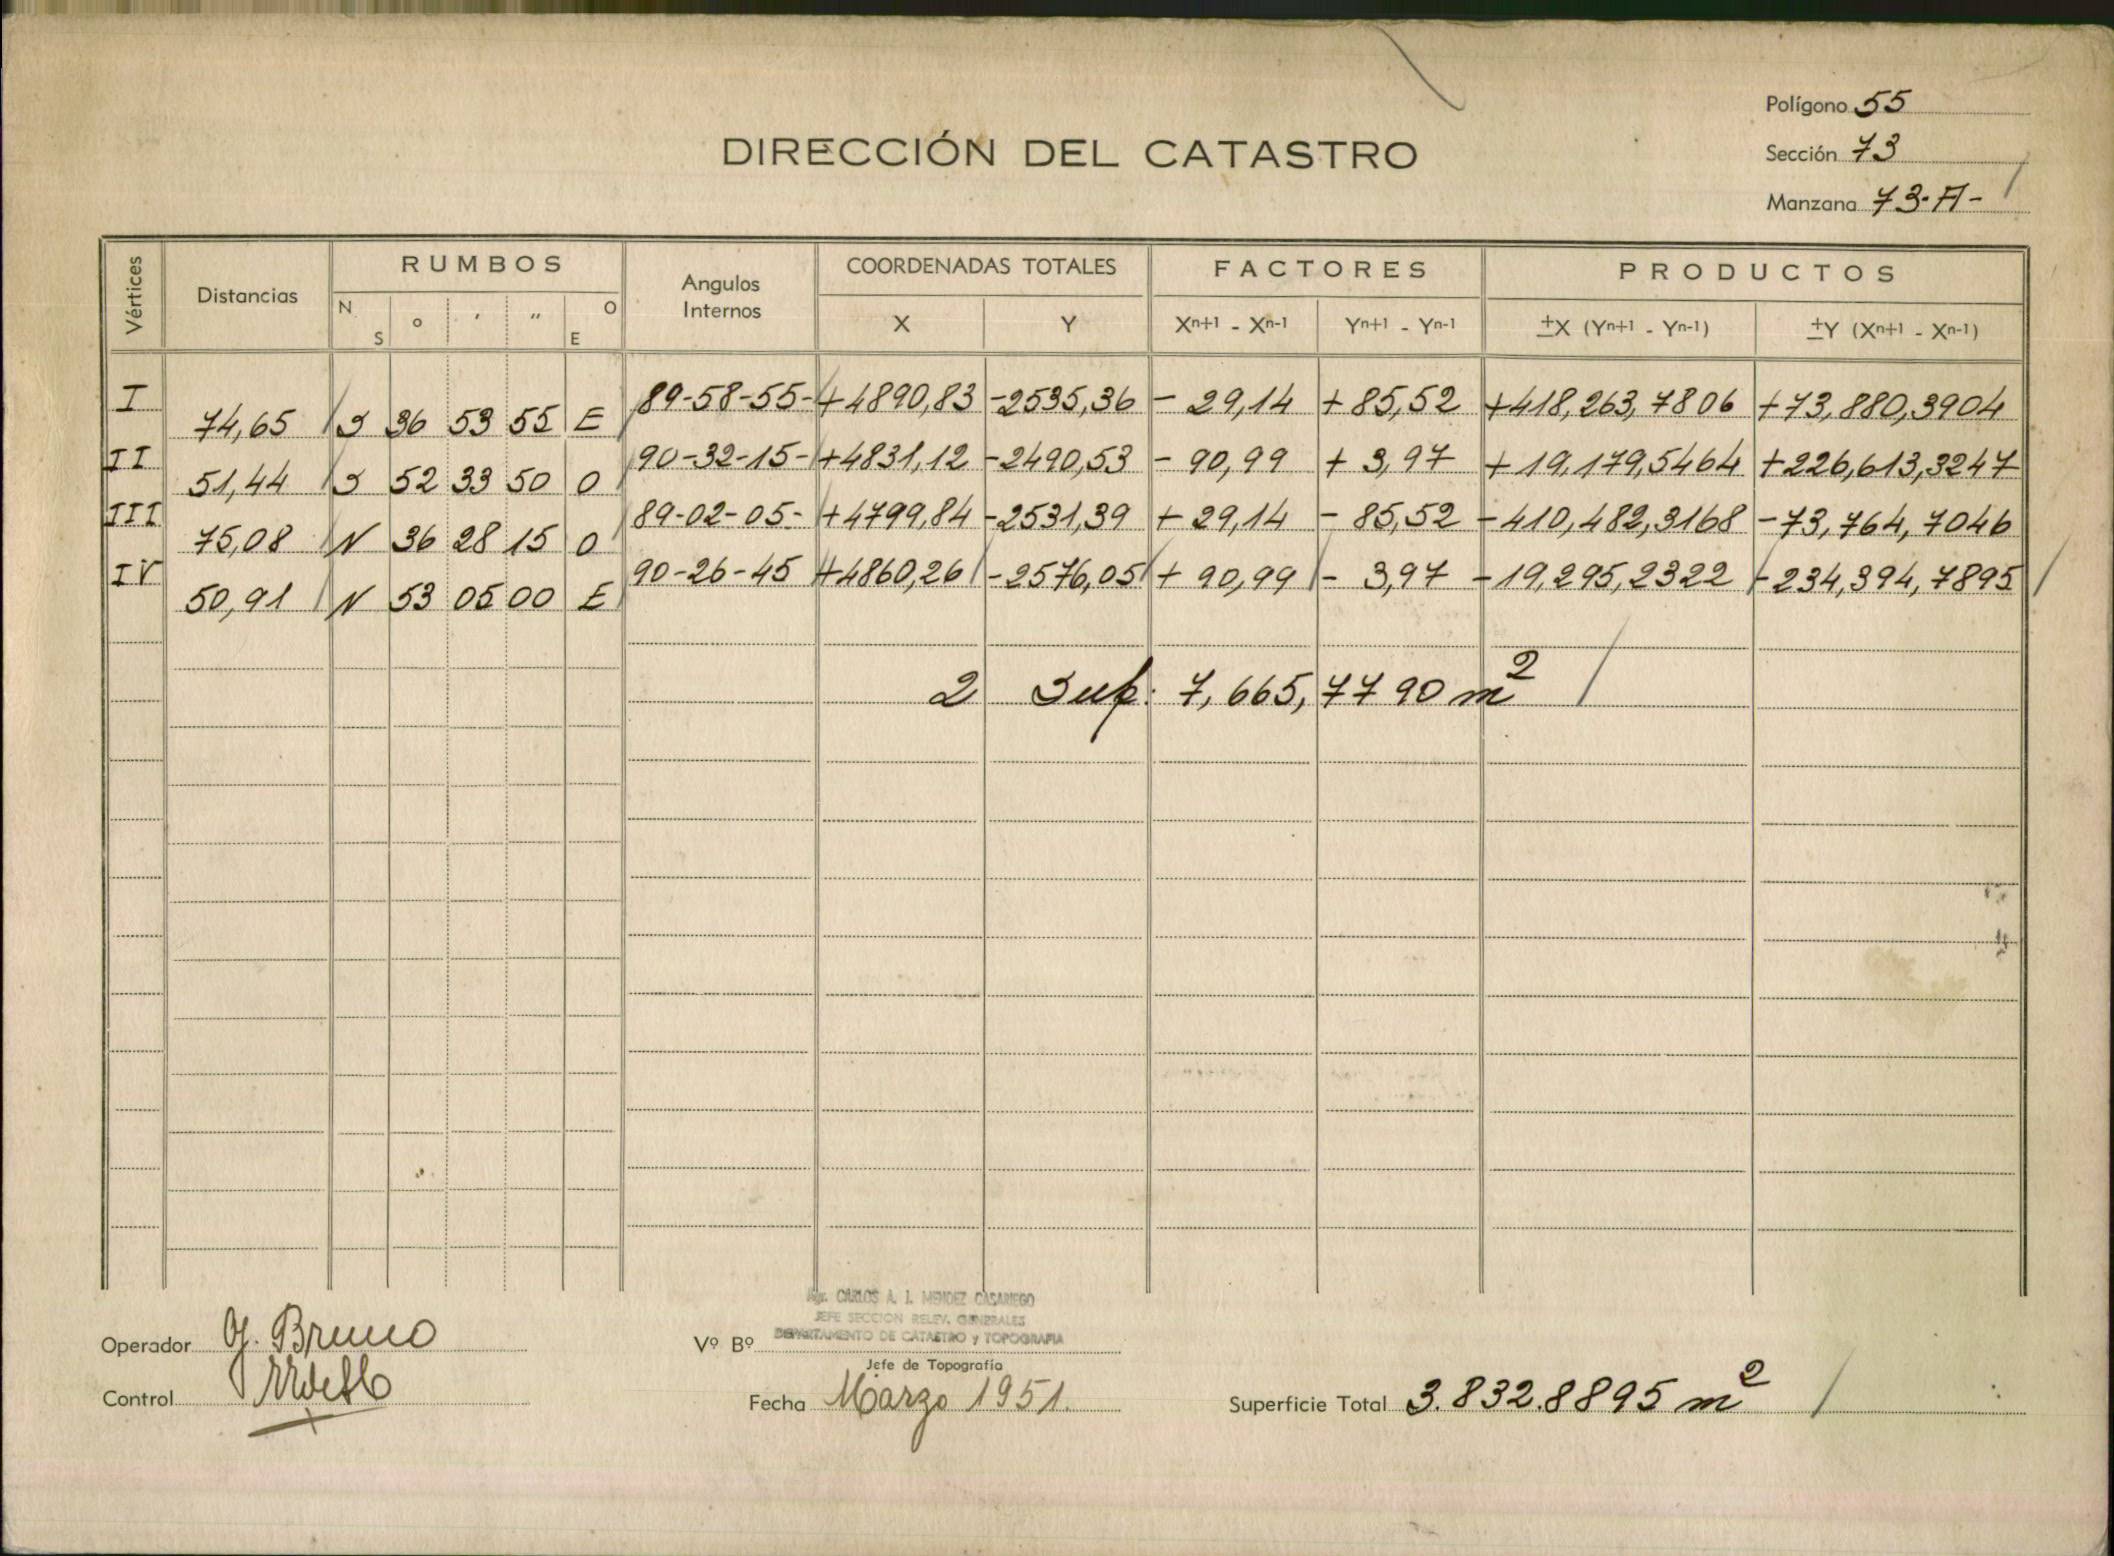 Polígono 55
DIRECCIÓN DEL CATASTRO
Sección 73
Manzana 73-A-
Vértices Distancias RUMBOS Angulos Internos COORDENADAS TOTALES FACTORES PRODUCTOS
N S ° ' " O E X Y Xn+1 - Xn-1 Yn+1 - Yn-1 ±X (Yn+1 - Yn-1) ±Y (Xn+1 - Xn-1)
I 89-58-55- +4890,83 -2535,36 - 29,14 + 85,52 +418,263,7806 +73,880,3904
74,65 S 36 53 55 E
II 90-32-15- +4831,12 -2490,53 - 90,99 + 3,97 + 19,179,5464 +226,613,3247
51,44 S 52 33 50 O
III 89-02-05- +4799,84 -2531,39 + 29,14 - 85,52 -410,482,3168 -73,764,7046
75,08 N 36 28 15 O
IV 90-26-45 +4860,26 -2576,05 + 90,99 - 3,97 -19,295,2322 -234,394,7895
50,91 N 53 05 00 E
2 Sup: 7,665,7790 m2
Agr. CARLOS A. I. MENDEZ CASARIEGO
JEFE SECCION RELEV. GENERALES
DEPARTAMENTO DE CATASTRO y TOPOGRAFIA
Operador G. Bruno Vº Bº
Jefe de Topografía
Control Fecha Marzo 1951. Superficie Total 3.832.8895 m2